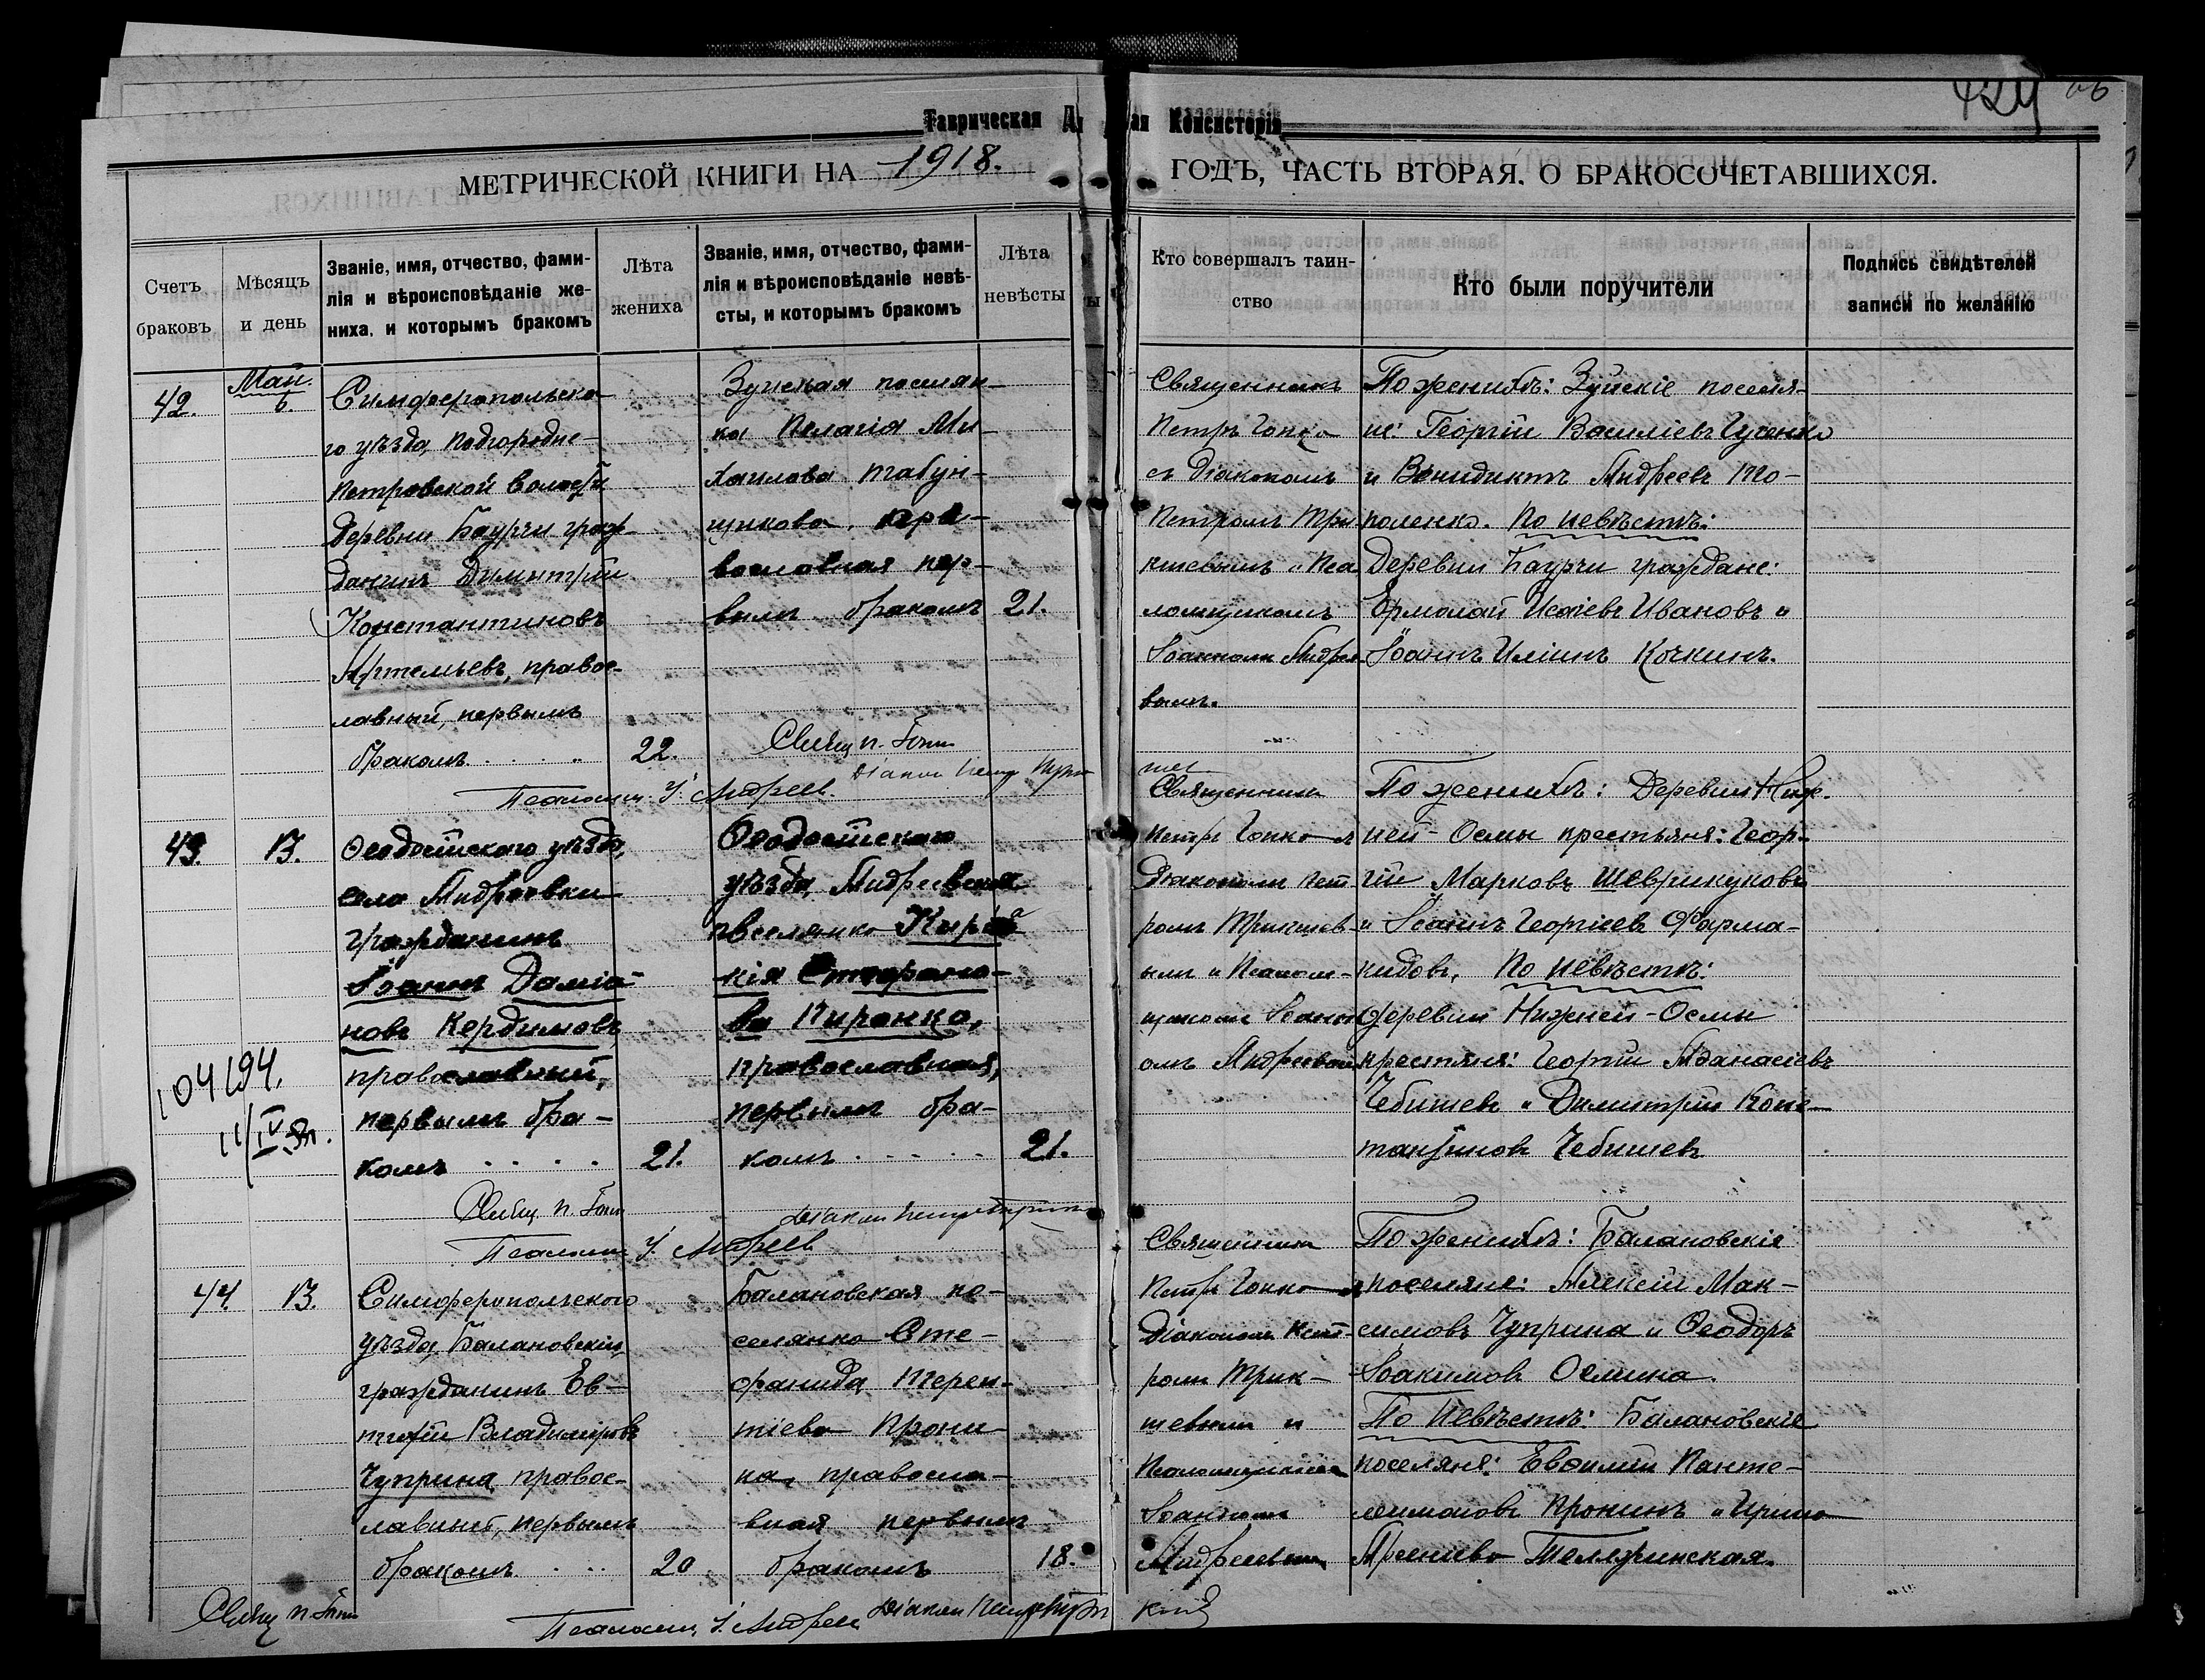 Таврическая Д
ая Консисторія
429 об
МЕТРИЧЕСКОЙ КНИГИ НА 1918.
ГОДЪ, ЧАСТЬ ВТОРАЯ. О БРАКОСОЧЕТАВШИХСЯ.
Счетъ
браковъ
Мѣсяцъ
и день
Званіе, имя, отчество, фами-
лія и вѣроисповѣданіе же-
ниха. и которымъ бракомъ
Лѣта
жениха
Званіе, имя, отчество, фами-
лія и вѣроисповѣданіе невѣ-
сты, и которымъ бракомъ
Лѣта
невѣсты
Кто совершалъ таин-
ство
Кто были поручители
Подпись свидѣтелей
записи по желанію
42.
Май.
6.
Симферопольска-
го уѣзда, Подгородне-
Петровской волости
деревни Баурчи граж-
данинъ Димитрій
Константиновъ
Артемьевъ, правос-
лавный, первымъ
бракомъ
22.
Зуйская поселян-
ка Пелагія Ми-
хаилова Табун-
щикова, пра-
вославная пер-
вымъ бракомъ
21.
Священникъ
Петръ Гопко
съ Діакономъ
Петромъ Три
кшевымъ и Пса
ломщикомъ
Іоанномъ Андрее-
вымъ.
По женихѣ: Зуйскіе поселя-
не: Георгій Василіевъ Гуженко
и Венидиктъ Андреевъ То-
поленко. По невѣстѣ:
Деревни Баурчи граждане:
Ермолай Исаіевъ Ивановъ и
Іоаннъ Иліинъ Кочкинъ.
Свящ П. Гопко
Псаломщ. І. Андреев.
43.
13.
Ѳеодосійскаго уѣзда,
села Андреевки
гражданинъ
Іоаннъ Даміа-
новъ Кердимовъ,
православный,
первымъ бра-
комъ
21.
Ѳеодосійскаго
уѣзда, Андреевская
поселянка Киріа
кія Стефано-
ва Пиранко,
православная,
первымъ бра-
комъ
21.
104194.
Священникъ
Петръ Гопко съ
Діакономъ Пет
ромъ Трикшев-
ымъ и Псалом-
щикомъ Іоанн
омъ Андреевымъ
По женихѣ: Деревни Ниж-
ней-Осмы крестьяня: Геор-
гій Марковъ Шеврикуковъ
и Іоаннъ Георгіевъ Фарма-
кидовъ, По невѣстѣ:
деревни Нижней-Осмы
крестяня: Георгій Аѳанасіевъ
Чебишевъ и Димитрій Конс-
тантиновъ Чебишевъ
Свящ П. Гопко
Псаломщ І. Андреев
44.
13.
Симферопольскаго
уѣзда, Балановскій
гражданинъ Ев-
тихій Владиміровъ
Чуприна, правос-
лавный, первымъ
бракомъ
20
Балановская по-
селянка Сте-
фанида Терен-
тіева Прони-
на, правосла-
вная первымъ
бракомъ
18.
Священникъ
Петръ Гопко съ
Діакономъ Пет-
ромъ Трик-
шевымъ и
Псаломщикомъ
Іоанномъ
Андреевымъ
По женихѣ: Балановскіе
поселяне: Алексій Мак-
симовъ Чуприна и Ѳеодоръ
Іоакимовъ Осмина.
По невѣстѣ: Балановскіе
поселяня: Евѳимій Панте-
леимоновъ Пронинъ и Ирина
Арсеніева Тележинская.
Свящ П. Гопко
Псаломщ І. Андреев